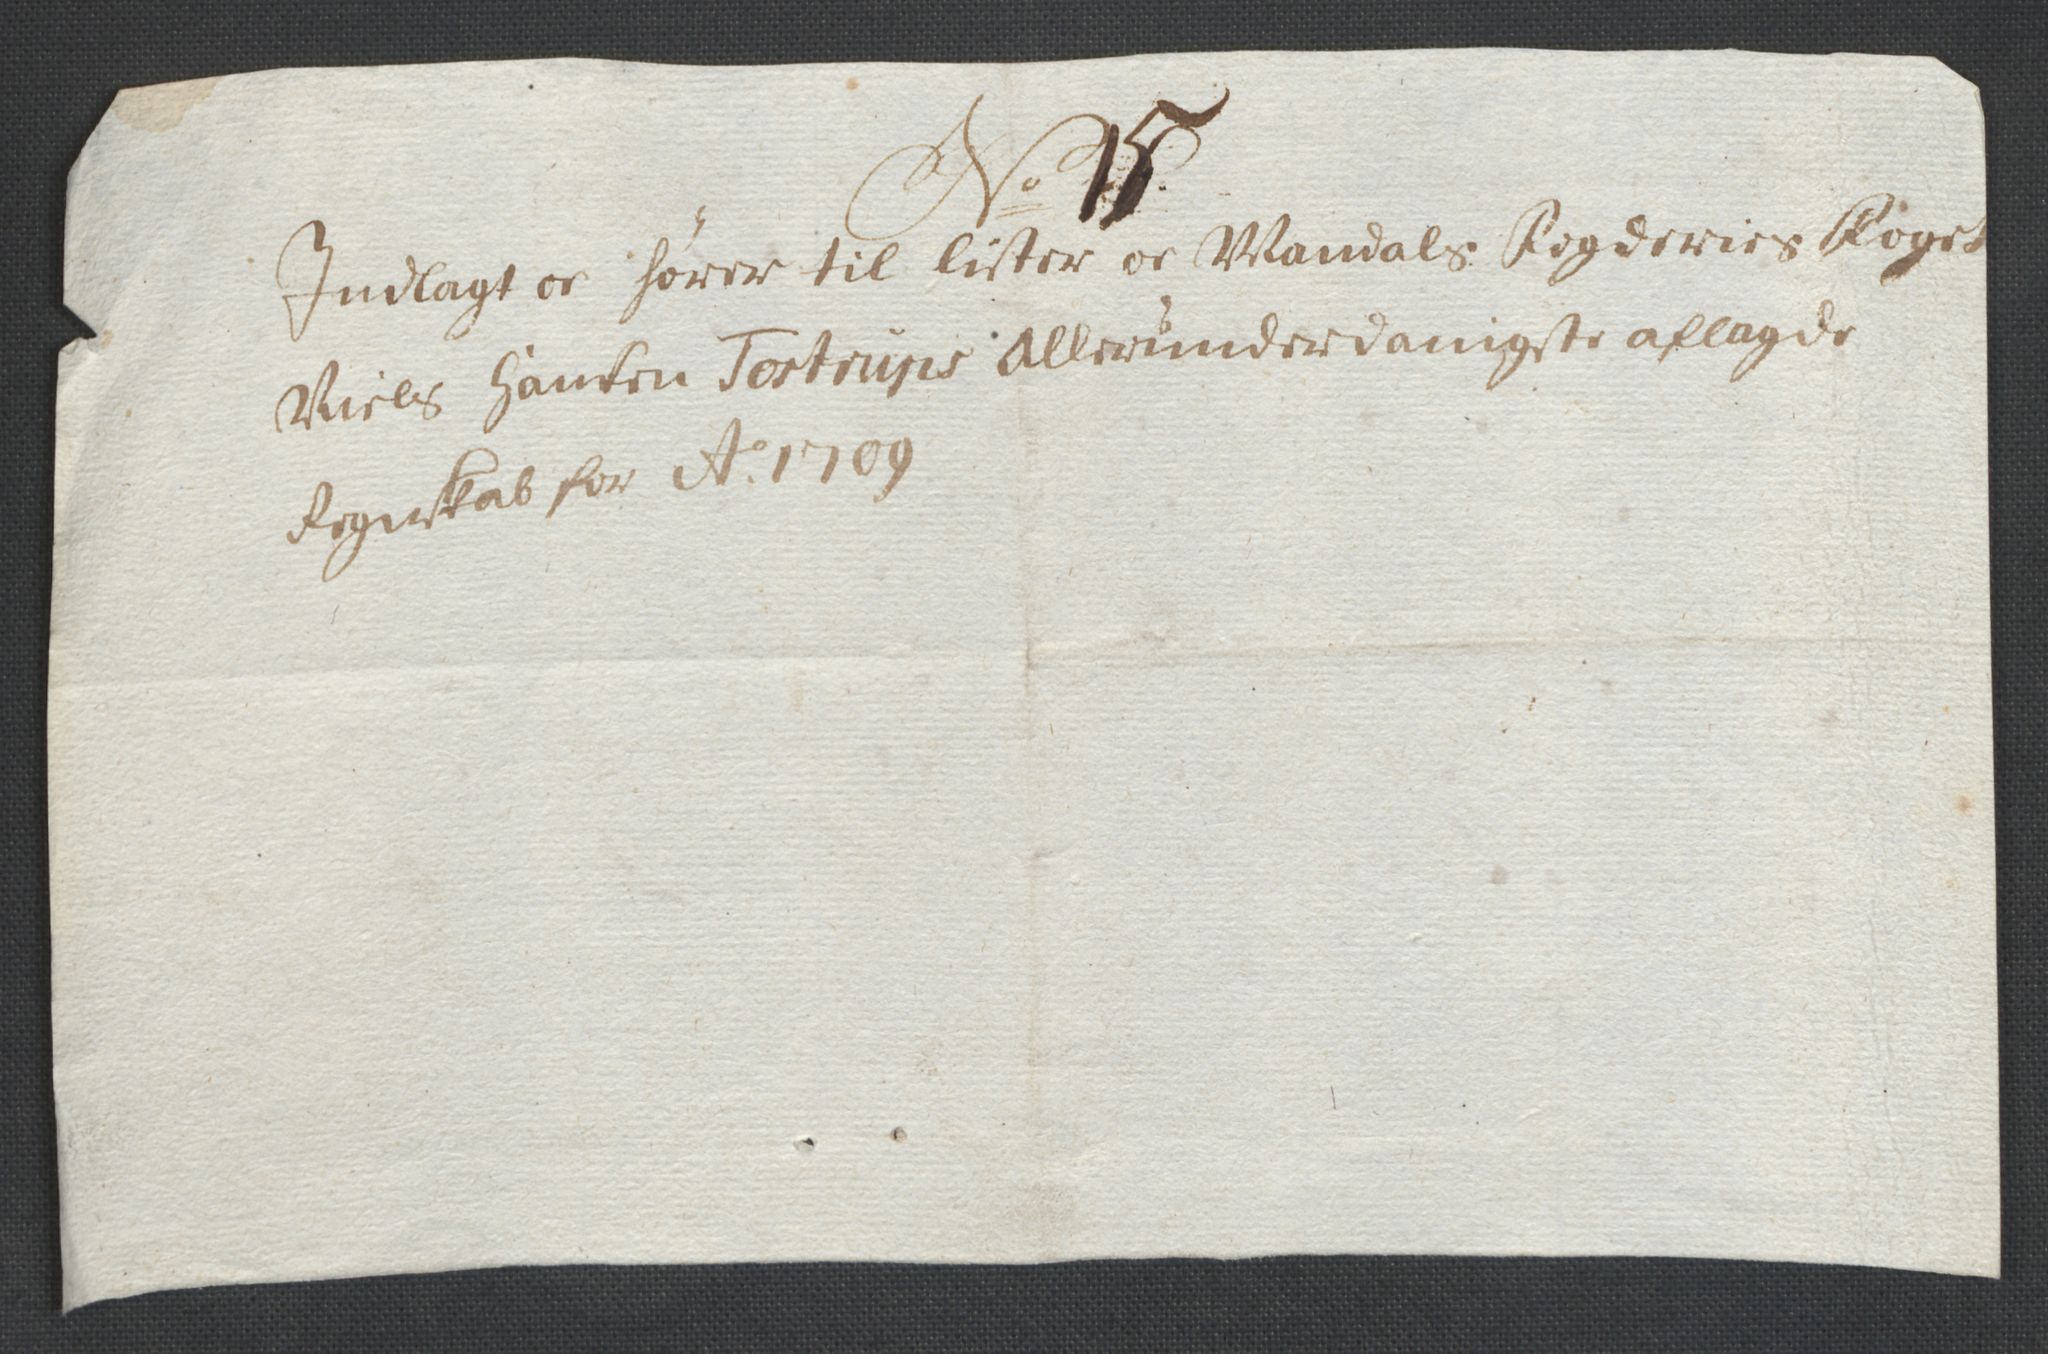 No 15
Indlagt oc hörer til Lister oc Mandals Fogderies Foget
Niels Hansen Tostrups Alleründerdanigste aflagde
Regnskab for Ao. 1709